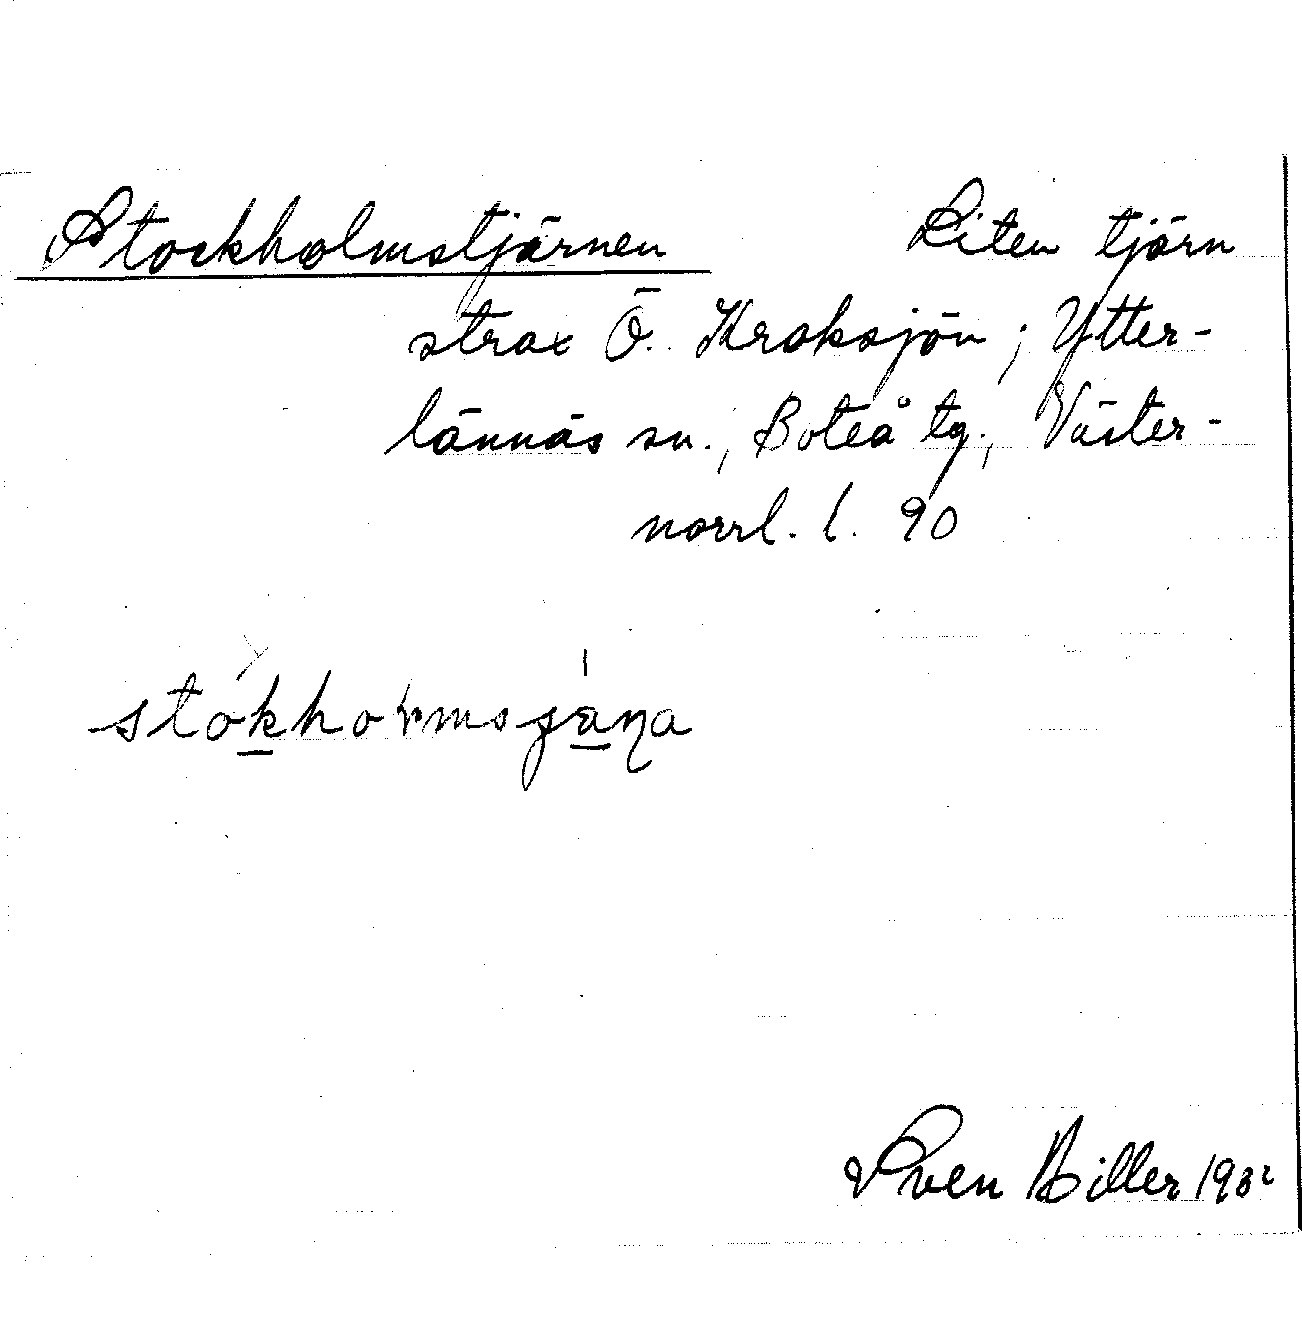 Stockholmstjärnen Liten tjärn
strax Ö. Kroksjön; Ytter-
lännäs sn., Boteå tg., Väster-
norrl. l. 90
Sven Hiller